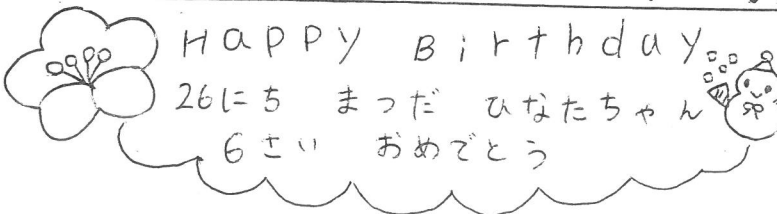 Happy Birthday
26にち まつだ ひなたちゃん
6さい おめでとう